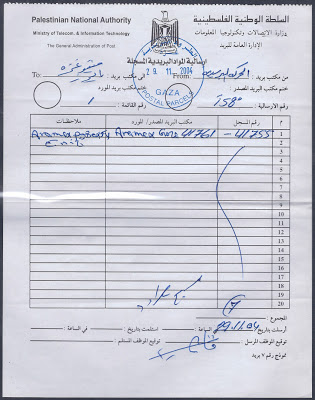 Palestinian National Authority
السلطة الوطنية الفلسطينية
Ministry of Telecom. & Information Technology
وزارة الاتصالات وتكنولوجيا المعلومات
The General Administration of Post
الإدارة العامة للبريد
ارسالية المواد البريدية المسجلة
29. 11. 2004
GAZA
POSTAL PARCELS
To: الى مكتب بريد:
From: من مكتب بريد:
ختم مكتب بريد المورد
ختم مكتب بريد المصدر:
رقم القائمة: 1
رقم الارسالية:
م
رقم المسجل
مكتب البريد المصدر/ المورد
ملاحظات
1
41755 - 41761
2
3
4
5
6
7
8
9
10
11
12
13
14
15
16
17
18
19
20
المجموع: 7
أرسلت بتاريخ: 29.11.04 الساعة: استلمت بتاريخ: في الساعة:
توقيع الموظف المرسل توقيع الموظف المستلم:
نموذج رقم ٧ بريد